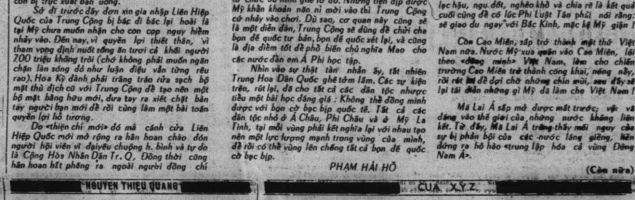 còn bị trục xuất bàn uống.
Sở dĩ trước đây đơn xin gia nhập Liên Hiệp
Quốc của Trung Cộng bị bác đi bác lại hoài là
tại Mỹ chưa muốn nhận cho con cọp nguy hiểm
nhảy vào. Đến nay, vì quyền lợi thiết thân, vì
tham vọng định nuốt sống ăn tươi cả khối người
700 triệu không trôi (chớ không phải muốn ngăn
chận làn sóng đỏ như luận điệu vẫn từng rêu
rao), Hoa Kỳ đành phải tráng tráo rửa sạch bộ
mặt thù địch cũ với Trung Cộng để tạo nên một
bộ mặt bằng hữu mới, đưa tay ra xiết chặt bàn
tay người bạn mới để rồi cùng làm một bài toán
quyền lợi hỗ tương.
Do «thiện chí mới» đó mà cánh cửa Liên
Hiệp Quốc mới mở rộng ra hân hoan chào đón
người hội viên vĩ đại yêu chuộng h. bình và tự do
là Cộng Hòa Nhân Dân Tr. Q. Đồng thời cũng
hân hoan hất phẳng ra ngoài người đồng chí
Mỹ khăn khoản năn nỉ mời vào thì Trung Cộng
cứ nhảy vào chơi. Dù sao, cơ quan này cũng sẽ
là một diễn đàn, Trung Cộng sẽ dùng để chửi cha
bọn đế quốc tư bản, bọn đế quốc xét lại, và cũng
là địa điểm tốt để phổ biến chủ nghĩa Mao cho
các nước đàn em Á Phi học tập.
Nhìn vào sự thật tàn nhẫn ấy, tất nhiên
Trung Hoa Dân Quốc ghê tởm lắm. Các sự kiện
trên, rút lại, đã cho tất cả các dân tộc nhược
tiểu một bài học đáng giá: Không thể đồng minh
được với bọn cờ bạc bịp quốc tế. Tất cả các
dân tộc nhỏ ở Á Châu, Phi Châu và ở Mỹ La
Tinh, tại mỗi vùng phải kết nghĩa lại với nhau tạo
nên một lực lượng mạnh trong vùng của mình,
để rồi có thể vùng lên chống tất cả bọn đế quốc
cờ bạc bịp.
PHẠM HẢI HỒ
lạc hậu, ngu dốt, nghèo khổ và chia rẽ là kết quả
cuối cùng để có lúc Phi Luật Tân phải nói rằng:
sẽ giao du ngay với Bắc Kinh, mặc kệ Mỹ giận!
Còn Cao Miên, sắp trở thành một thứ Việt
Nam nữa. Nước Mỹ vừa quần vào Cao Miên, là
theo «đồng minh» Việt Nam, làm cho chiến
trường Cao Miên trở thành công khai, nóng nảy,
lại tái diễn những gì Mỹ đã làm cho Việt Nam!
Mã Lai Á sắp mở được mắt trước; vội vã
đứng vào thế giới của những nước không liên
kết. Từ đấy, Mã Lai Á trông thấy mối nguy cơ
sự bị phân bội của các nước láng giềng, liền
đứng ra hô hào «trung lập hóa cả vùng Đông
Nam Á».
(Còn nữa)
NGUYỄN THIỆU QUANG
CỦA X.Y.Z.